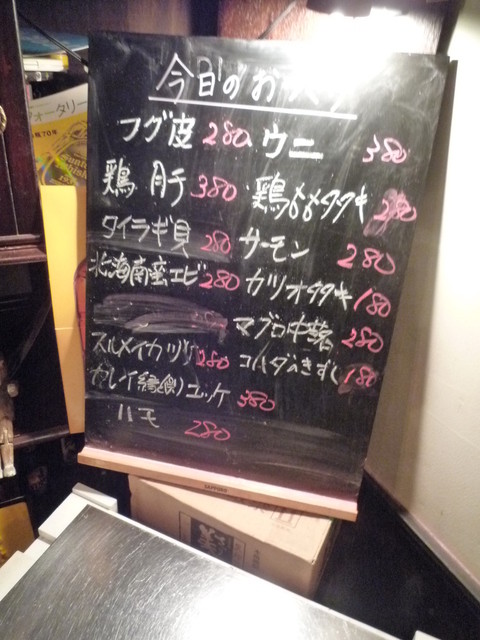 今日のお
フグ皮 280 ウニ 380
鶏肝 380 鶏ももタタキ 280
タイラギ貝 280 サーモン 280
北海南蛮エビ 280 カツオタタキ 180
マグロ中落 280
スルメイカ 280 コハダのきずし 180
カレイ(縁側)ユッケ 380
ハモ 280
SAPPORO